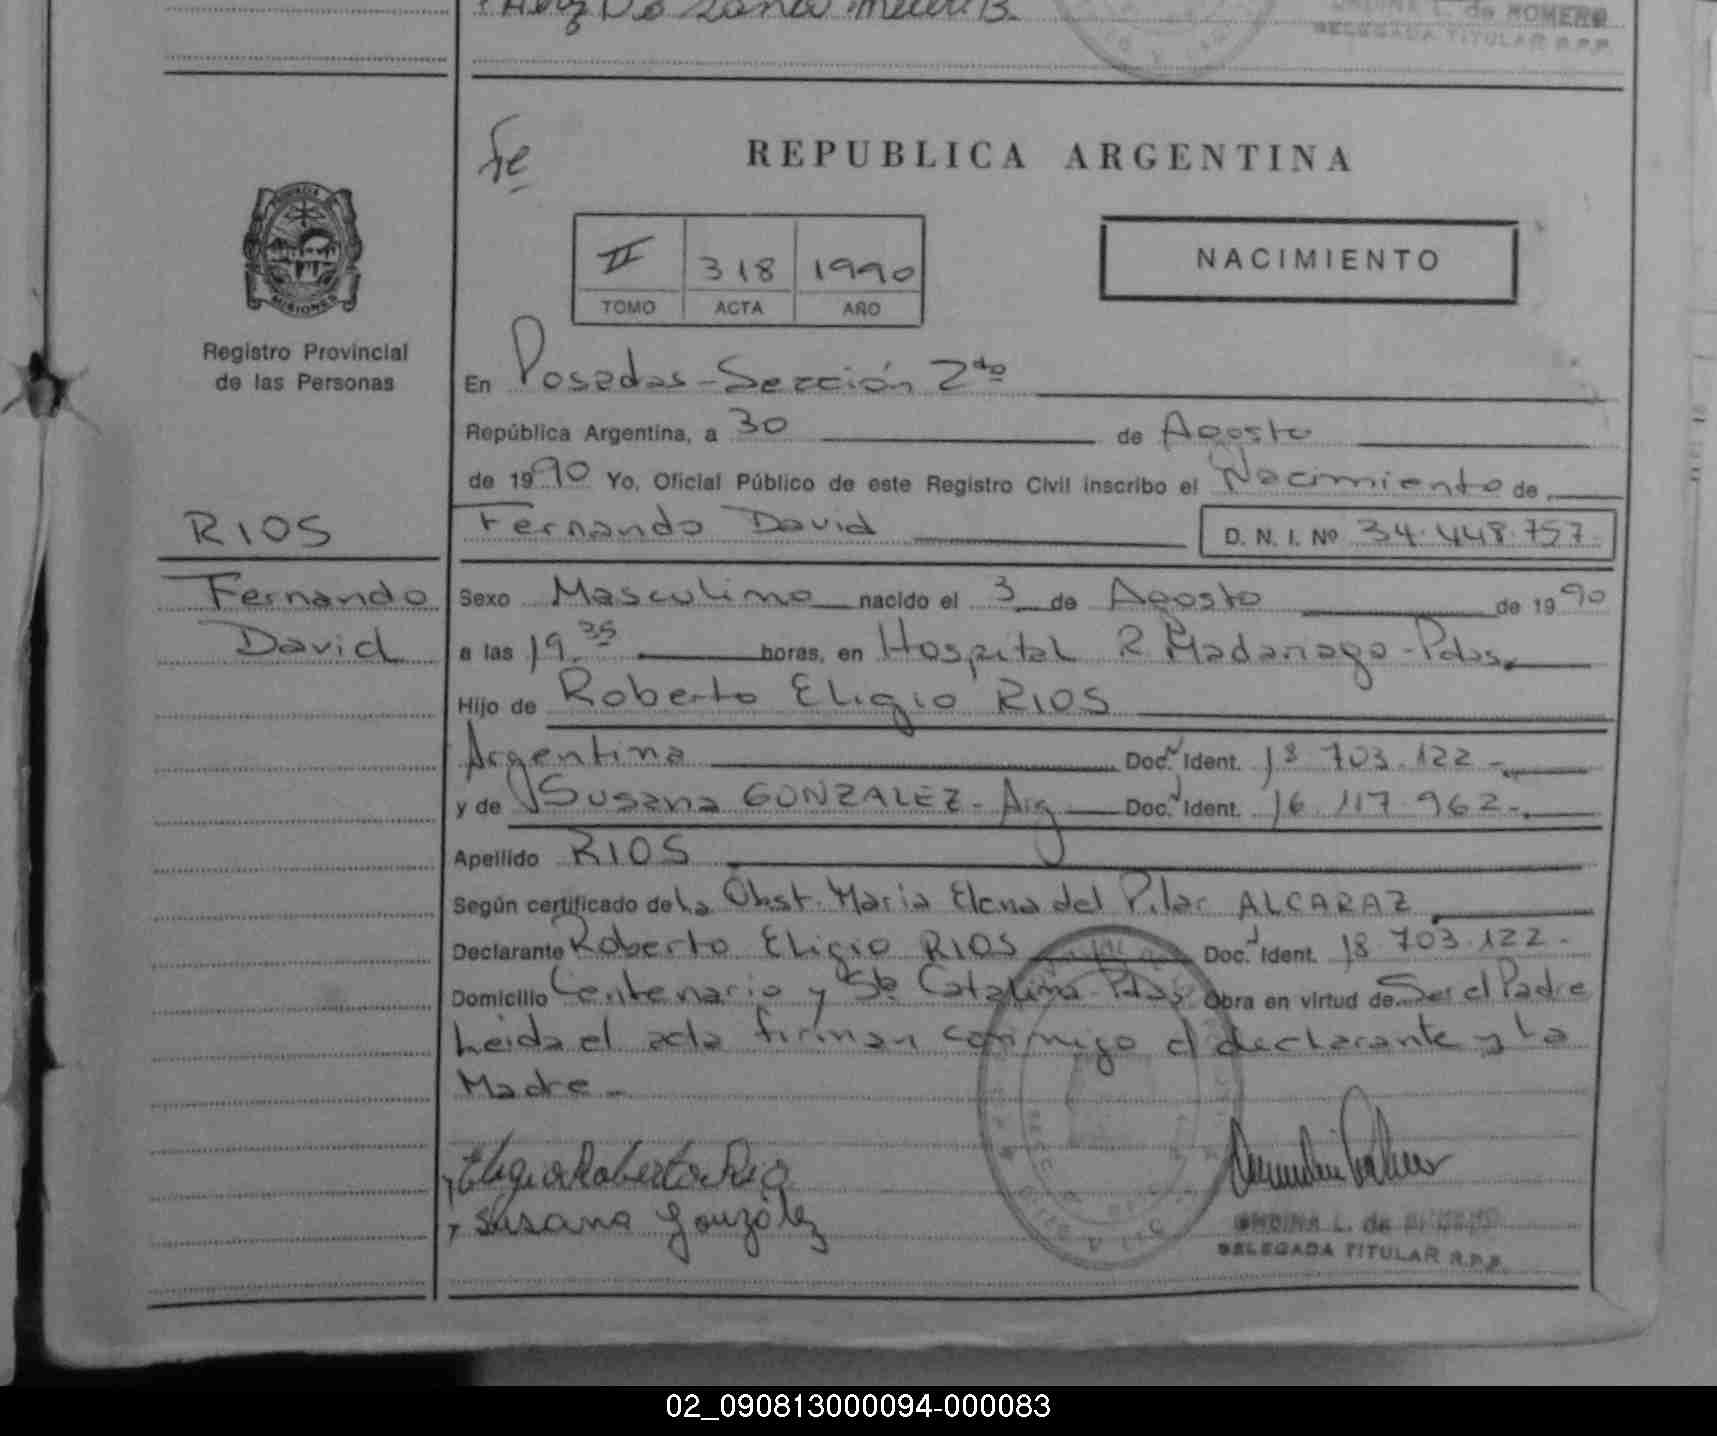 de ROMERO
DELEGADA TITULAR R.P.P.
Fe
REPUBLICA ARGENTINA
II 318 1990
TOMO ACTA AÑO
NACIMIENTO
MISIONES
Registro Provincial
de las Personas
En Posadas-Sección 2da
República Argentina, a 30 de Agosto
de 1990 Yo, Oficial Público de este Registro Civil inscribo el Nacimiento de
RIOS
Fernando David D. N. I. Nº 34.448.757.
Fernando
Sexo Masculino nacido el 3 de Agosto de 1990
David
a las 19.35 horas, en Hospital R. Madariaga-Pdas.
Hijo de Roberto Eligio RIOS
Argentina Doc. Ident. 18.703.122-
y de Susana GONZALEZ-Arg Doc. Ident. 16.117.962-.
Apellido RIOS
Según certificado de La Obst. Maria Elena del Pilar ALCARAZ
Declarante Roberto Eligio RIOS Doc. Ident. 18.703.122-
Domicilio Centenario y Sta Catalina-Pdas Obra en virtud de Ser el Padre
Leida el acta firman conmigo el declarante y La
Madre-
Eligio Roberto Rio
Susana González
ONDINA L. de ROMERO
DELEGADA TITULAR R.P.P.
02_090813000094-000083